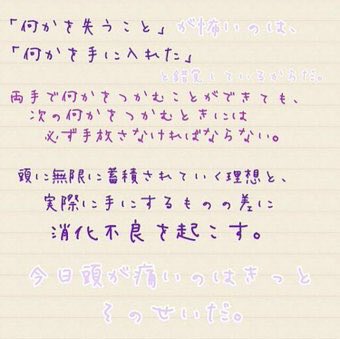 「何かを失うこと」が怖いのは、
「何かを手に入れた」
と錯覚しているからだ。
両手で何かをつかむことができても、
次の何かをつかむときには
必ず手放さなければならない。
頭に無限に蓄積されていく理想と、
実際に手にするものの差に
消化不良を起こす。
今日頭が痛いのはきっと
そのせいだ。